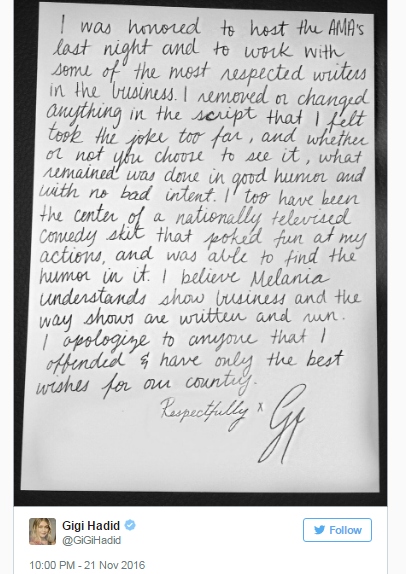 I was honored to host the AMA's
last night and to work with
some of the most respected writers
in the business. I removed or changed
anything in the script that I felt
took the joke too far, and whether
or not you choose to see it, what
remained was done in good humor and
with no bad intent. I too have been
the center of a nationally televised
comedy skit that poked fun at my
actions, and was able to find the
humor in it. I believe Melania
understands show business and the
way shows are written and run.
I apologize to anyone that I
offended & have only the best
wishes for our country.
Respectfully x Gi
Gigi Hadid
@GiGiHadid
Follow
10:00 PM - 21 Nov 2016